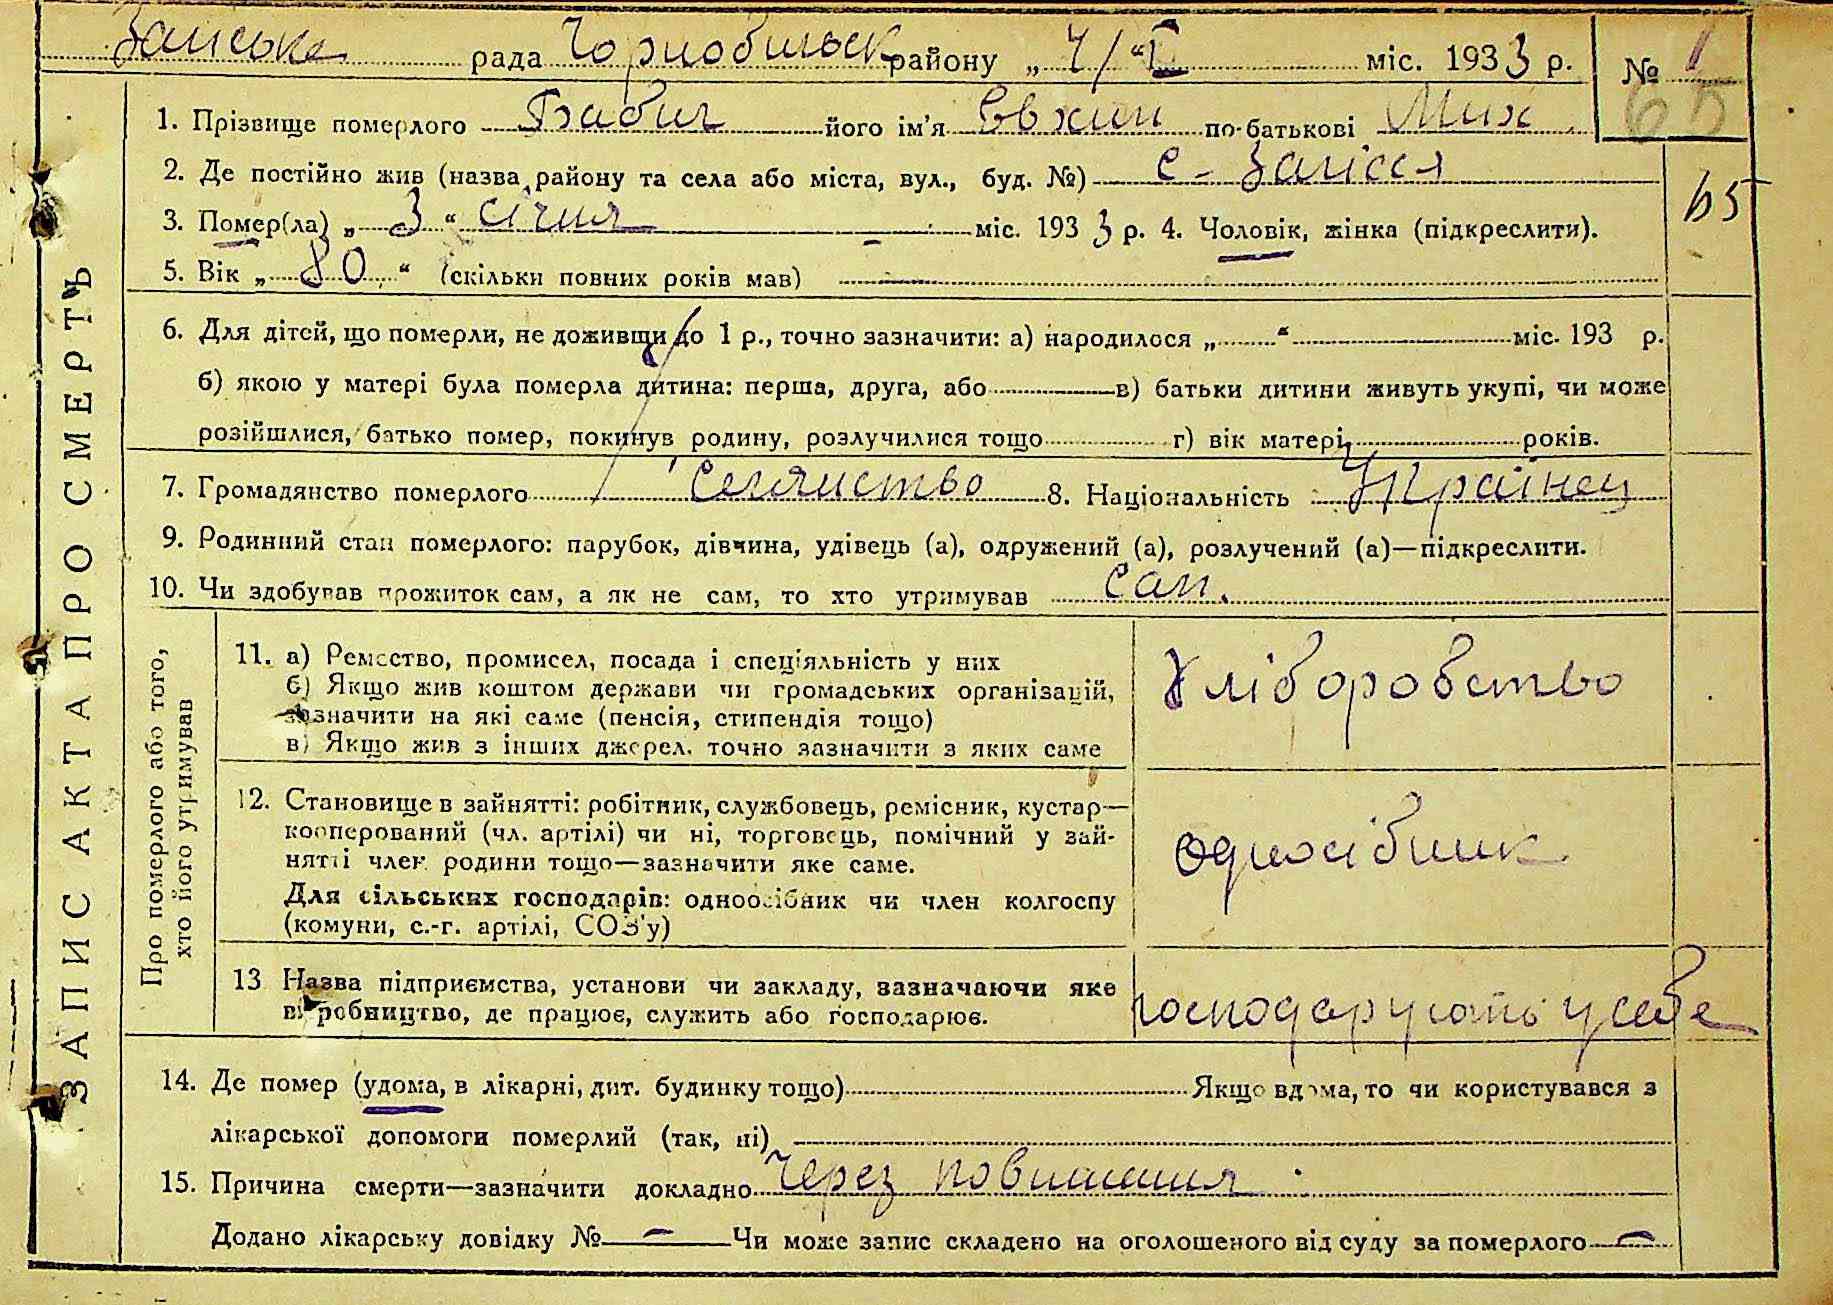 Заліська рада Чорнобильск району „ 4/ “ І міс. 1933 р. № 1
65
1. Прізвище померлого Бабич його ім’я Євхим по-батькові Мих
2. Де постійно жив (назва району та села або міста, вул., буд. №) с. Залісся
65
3. Помер(ла) „ 3 “ січня міс. 1933 р. 4. Чоловік, жінка (підкреслити).
5. Вік „ 80 “ (скільки повних років мав)
6. Для дітей, що померли, не доживши до 1 р., точно зазначити: а) народилося „ “ міс. 193 р.
б) якою у матері була померла дитина: перша, друга, або в) батьки дитини живуть укупі, чи може
розійшлися, батько помер, покинув родину, розлучилися тощо г) вік матері років.
7. Громадянство померлого Селянство 8. Національність Українец
9. Родинний стан померлого: парубок, дівчина, удівець (а), одружений (а), розлучений (а)—підкреслити.
10. Чи здобував прожиток сам, а як не сам, то хто утримував сам.
ЗАПИС АКТА ПРО СМЕРТЬ
Про померлого або того,
хто його утримував
11. а) Ремество, промисел, посада і спеціяльність у них
б) Якщо жив коштом держави чи громадських організацій,
зазначити на які саме (пенсія, стипендія тощо)
в) Якщо жив з інших джерел, точно зазначити з яких саме
Хліборобство
12. Становище в зайнятті: робітник, службовець, ремісник, кустар—
кооперований (чл. артілі) чи ні, торговець, помічний у зай-
нятті член родини тощо—зазначити яке саме.
Для сільських господарів: одноосібник чи член колгоспу
(комуни, с.-г. артілі, СОЗ’у)
односібник
13 Назва підприємства, установи чи закладу, зазначаючи яке
виробництво, де працює, служить або господарює.
господарують у себе
14. Де помер (удома, в лікарні, дит. будинку тощо) Якщо вдома, то чи користувався з
лікарської допомоги померлий (так, ні)
15. Причина смерти—зазначити докладно Через
Додано лікарську довідку № — Чи може запис складено на оголошеного від суду за померлого —